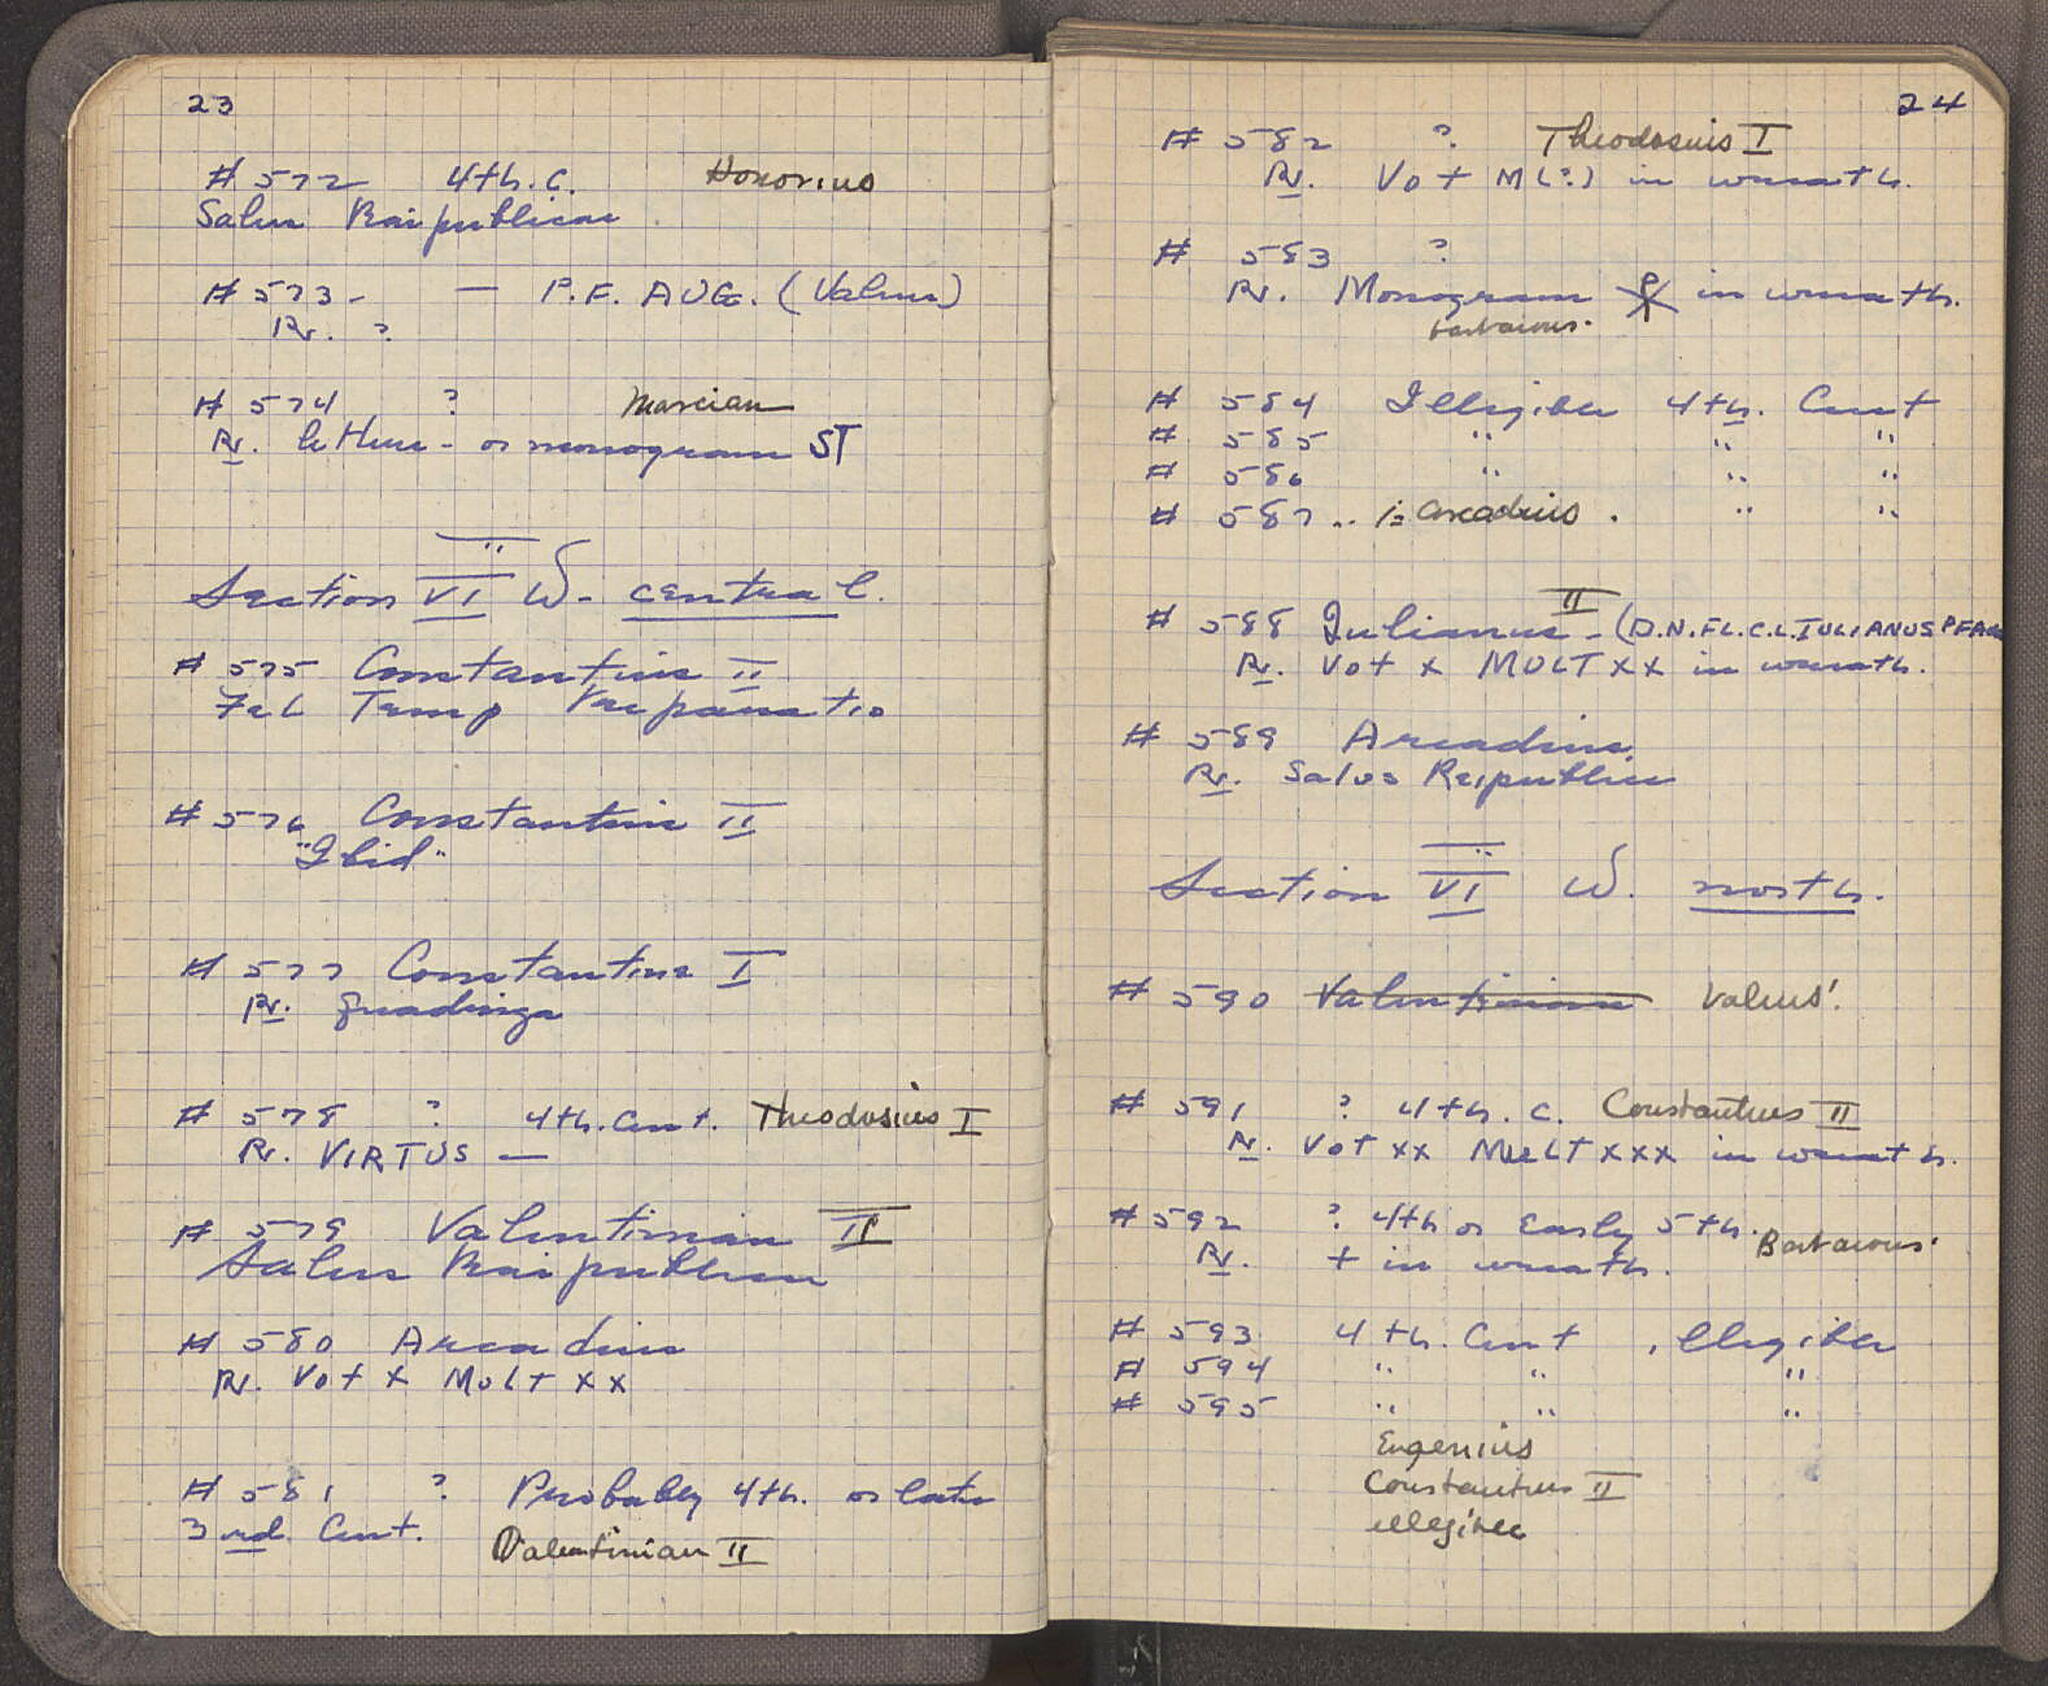 23
# 572 4th. c. Honorius
Salus Reipublicae
# 573 - — P.F. AUG. (Valens)
Rv. ?
# 574 ? Marcian
Rv. letters - or monogram ST
Section VI W - central.
# 575 Constantius II
Fel Temp Reparatio
# 576 Constantius II
"Ibid"
# 577 Constantine I
Rv. Quadriga
# 578 ? 4th. Cent. Theodosius I
Rv. VIRTUS —
# 579 Valentinian II
Salus Reipublicae
# 580 Arcadius
Rv. Vot X Mult XX
# 581 ? Probably 4th. or late
3rd Cent.
Valentinian II
24
# 582 ? Theodosius I
Rv. Vot M(?) in wreath.
# 583 ?
Rv. Monogram in wreath.
barbarous.
# 584 Illegible 4th. Cent
# 585 " " "
# 586 " " "
# 587 .. is Arcadius . " "
# 588 Julianus II - (D.N.FL.C.L.IULIANUS PF AUG
Rv. Vot X MULT XX in wreath.
# 589 Arcadius
Rv. Salus Reipublica
Section VI W. north.
# 590 Valentinian Valens!
# 591 ? 4th. c. Constantius II
Rv. Vot XX MULT XXX in wreath.
# 592 ? 4th or Early 5th. Barbarous.
Rv. + in wreath.
# 593 4th. Cent , illegible
# 594 " " "
# 595 " " "
Eugenius
Constantius II
illegible